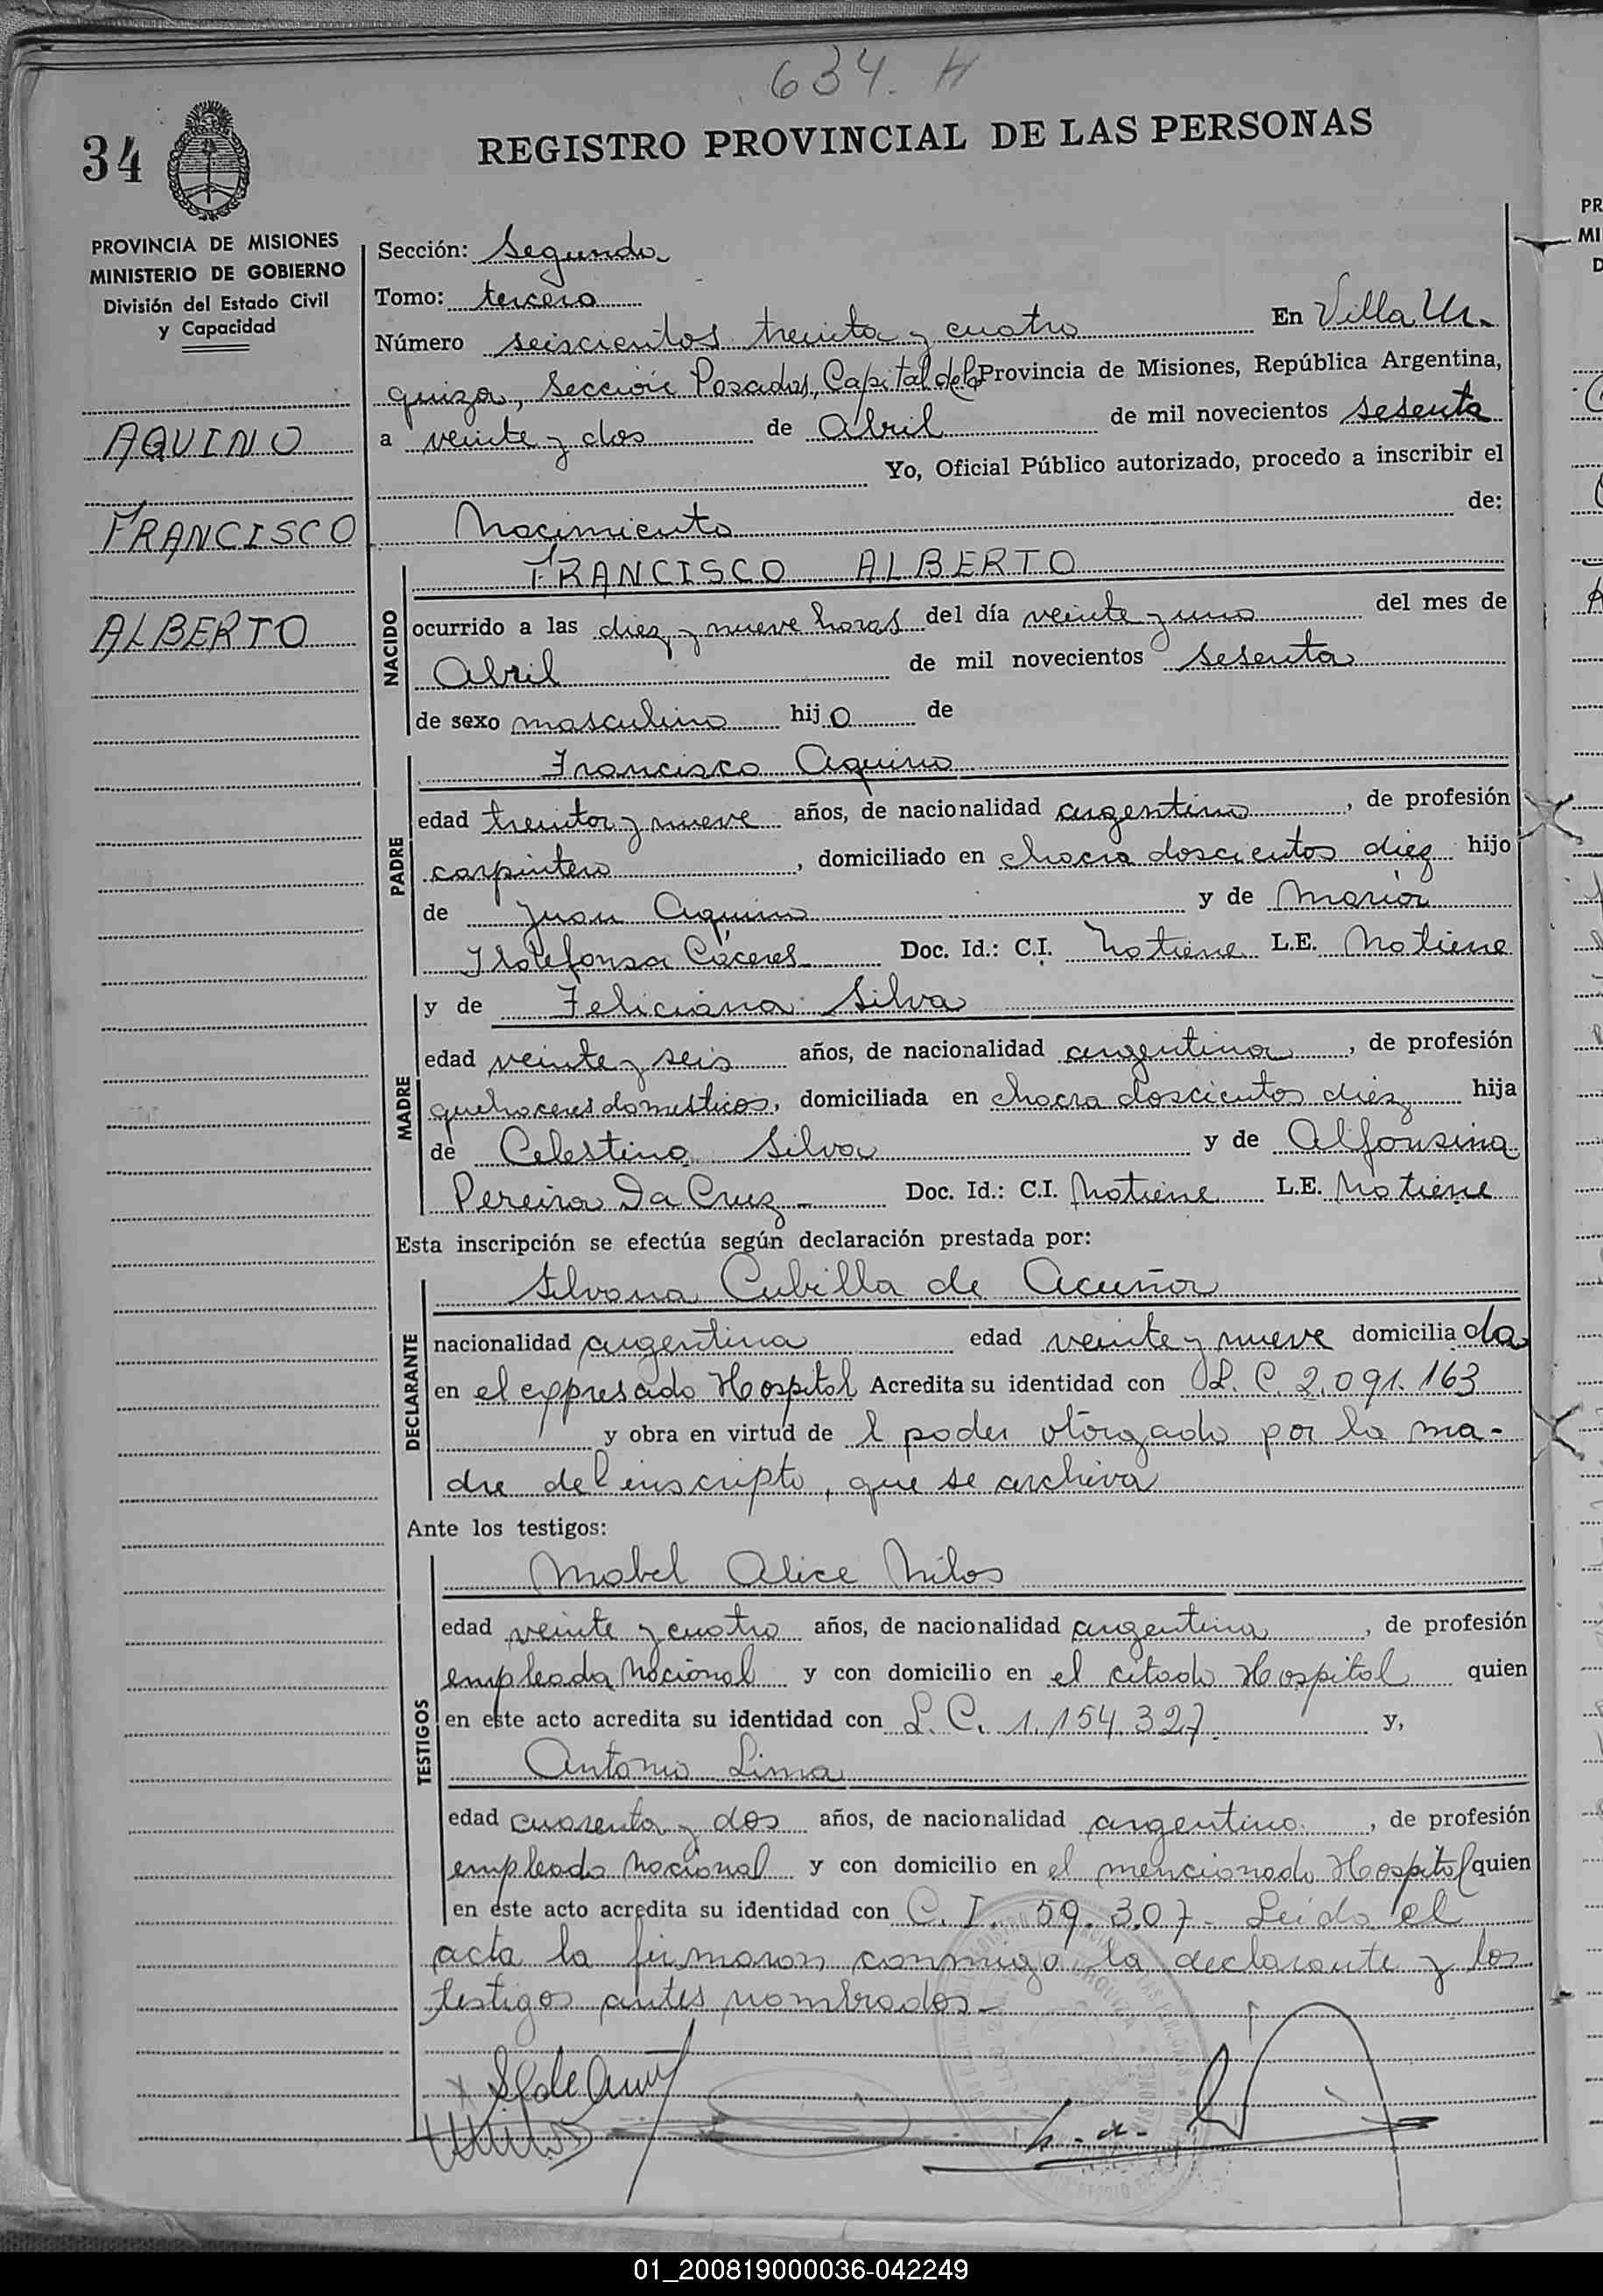 634. H
34
REGISTRO PROVINCIAL DE LAS PERSONAS
PROVINCIA DE MISIONES
MINISTERIO DE GOBIERNO
División del Estado Civil
y Capacidad
AQUINO
FRANCISCO
ALBERTO
Sección: Segunda
Tomo: tercero
Número seiscientos treinta y cuatro En Villa Ur-
quiza, Sección Posadas, Capital de la Provincia de Misiones, República Argentina,
a veinte y dos de Abril de mil novecientos sesenta
Yo, Oficial Público autorizado, procedo a inscribir el
Nacimiento de:
NACIDO
FRANCISCO ALBERTO
ocurrido a las diez y nueve horas del día veinte y uno del mes de
Abril de mil novecientos sesenta
de sexo masculino hijo de
PADRE
Francisco Aquino
edad treinta y nueve años, de nacionalidad argentino, de profesión
carpintero, domiciliado en chacra doscientos diez hijo
de Juan Aquino y de María
Ildefonsa Cáceres Doc. Id.: C.I. No tiene L.E. No tiene
MADRE
y de Feliciana Silva
edad veinte y seis años, de nacionalidad argentina, de profesión
quehaceres domesticos, domiciliada en chacra doscientos diez hija
de Celestino Silva y de Alfonsina
Pereira Da Cruz Doc. Id.: C.I. No tiene L.E. No tiene
Esta inscripción se efectúa según declaración prestada por:
DECLARANTE
Silvana Cubilla de Acuña
nacionalidad argentina edad veinte y nueve domiciliada
en el expresado Hospital Acredita su identidad con L. C. 2.091.163
y obra en virtud de l poder otorgado por la ma-
dre del inscripto, que se archiva
Ante los testigos:
TESTIGOS
Mabel Alice Milos
edad veinte y cuatro años, de nacionalidad argentina, de profesión
empleada Nacional y con domicilio en el citado Hospital quien
en este acto acredita su identidad con L. C. 1.154.327 y,
Antonio Lima
edad cuarenta y dos años, de nacionalidad argentino, de profesión
empleado Nacional y con domicilio en el mencionado Hospital quien
en este acto acredita su identidad con C. I. 59.307- Leida el
acta la firmaron conmigo la declarante y los
testigos antes nombrados.-
01_200819000036-042249